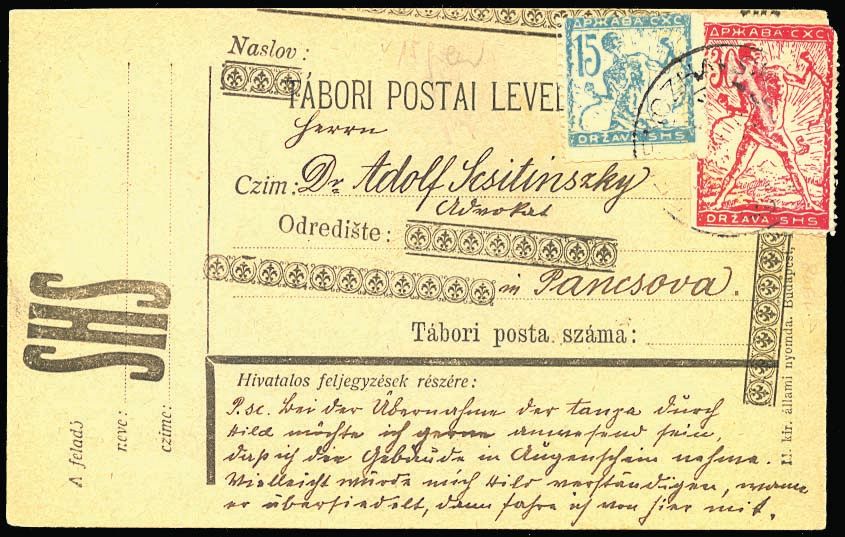 Naslov:
TÁBORI POSTAI LEVE
Herrn
Czim: Dr. Adolf Scsitinszky
Advokat
Odredište:
in Pancsova.
Tábori posta száma:
SHS
A feladó
neve:
czime:
Hivatalos feljegyzések részére:
P.sc. Bei der Übernahme der tanya durch
Hild möchte ich gerne anwesend sein,
daß ich die Gebäude in Augenschein nehme.
Vielleicht würde mich Hild verständigen, wann
er übersiedelt, dann fahre ich von hier mit.
M. kir. állami nyomda. Budapest,
ДРЖАВА СХС
15
DRŽAVA SHS
ДРЖАВА СХС
30
DRŽAVA SHS